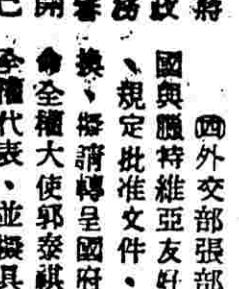 將
政
務
開
已
㈣外交部張部
國與臘特維亞友好
、規定批准文件、
換、擬請轉呈國府
命全權大使郭泰祺
全權代表、並擬具